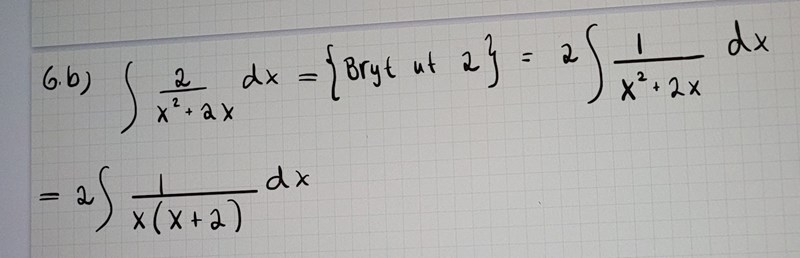 6.b) ∫ 2/(x² + 2x) dx = {Bryt ut 2} = 2∫ 1/(x² + 2x) dx
= 2∫ 1/(x(x+2)) dx